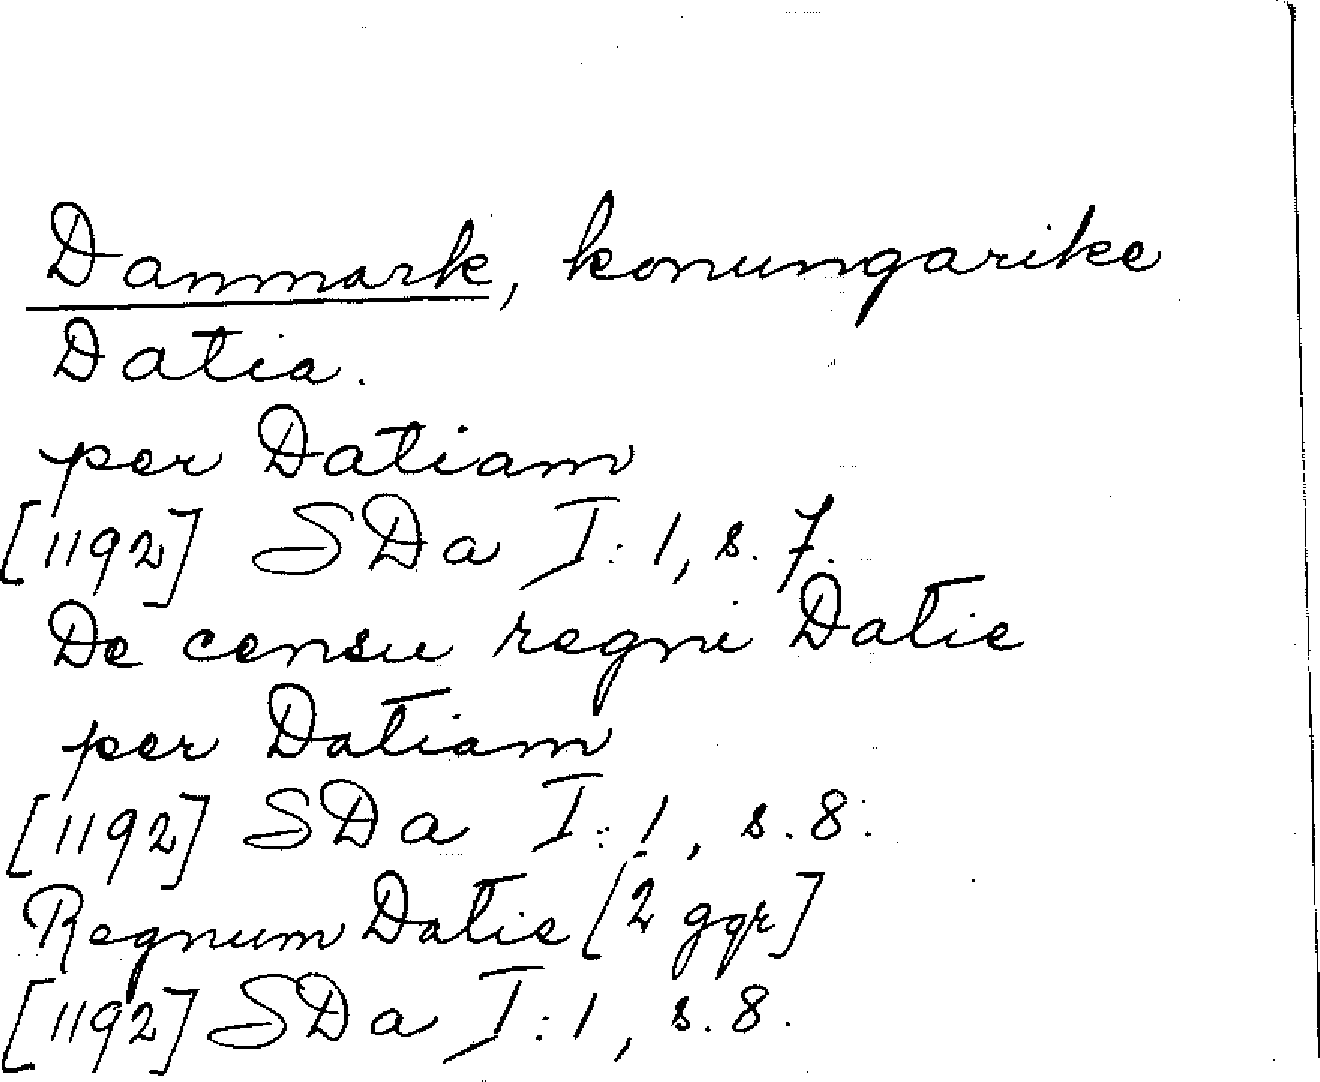 Danmark, konungarike
Datia.
per Datiam
[1192] SDa I:1, s. 7.
De censu regni Datie
per Datiam
[1192] SDa I:1, s. 8.
Regnum Datie [2 ggr]
[1192] SDa I:1, s. 8.